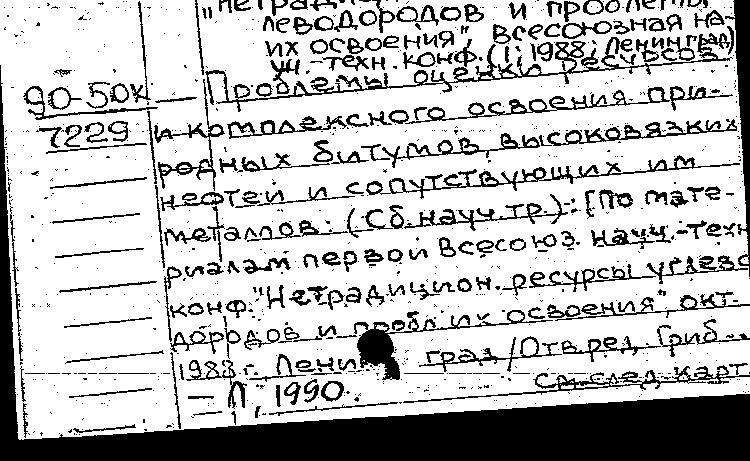 "Нетрадиц
леводородов и проблемы
их освоения", Всесоюзная на-
уч.-техн. конф. (1; 1988; Ленинград)
90-50к Проблемы оценки ресурсов
7229 и комплексного освоения при-
родных битумов, высоковязких
нефтей и сопутствующих им
металлов: (Сб. науч. тр.): [По мате-
риалам первой Всесоюз. науч.-техн
конф. "Нетрадицион. ресурсы углево
дородов и пробл. их освоения", окт.
1988 г. Ленинград / Отв. ред. Гриб
— Л, 1990. См. след. карт